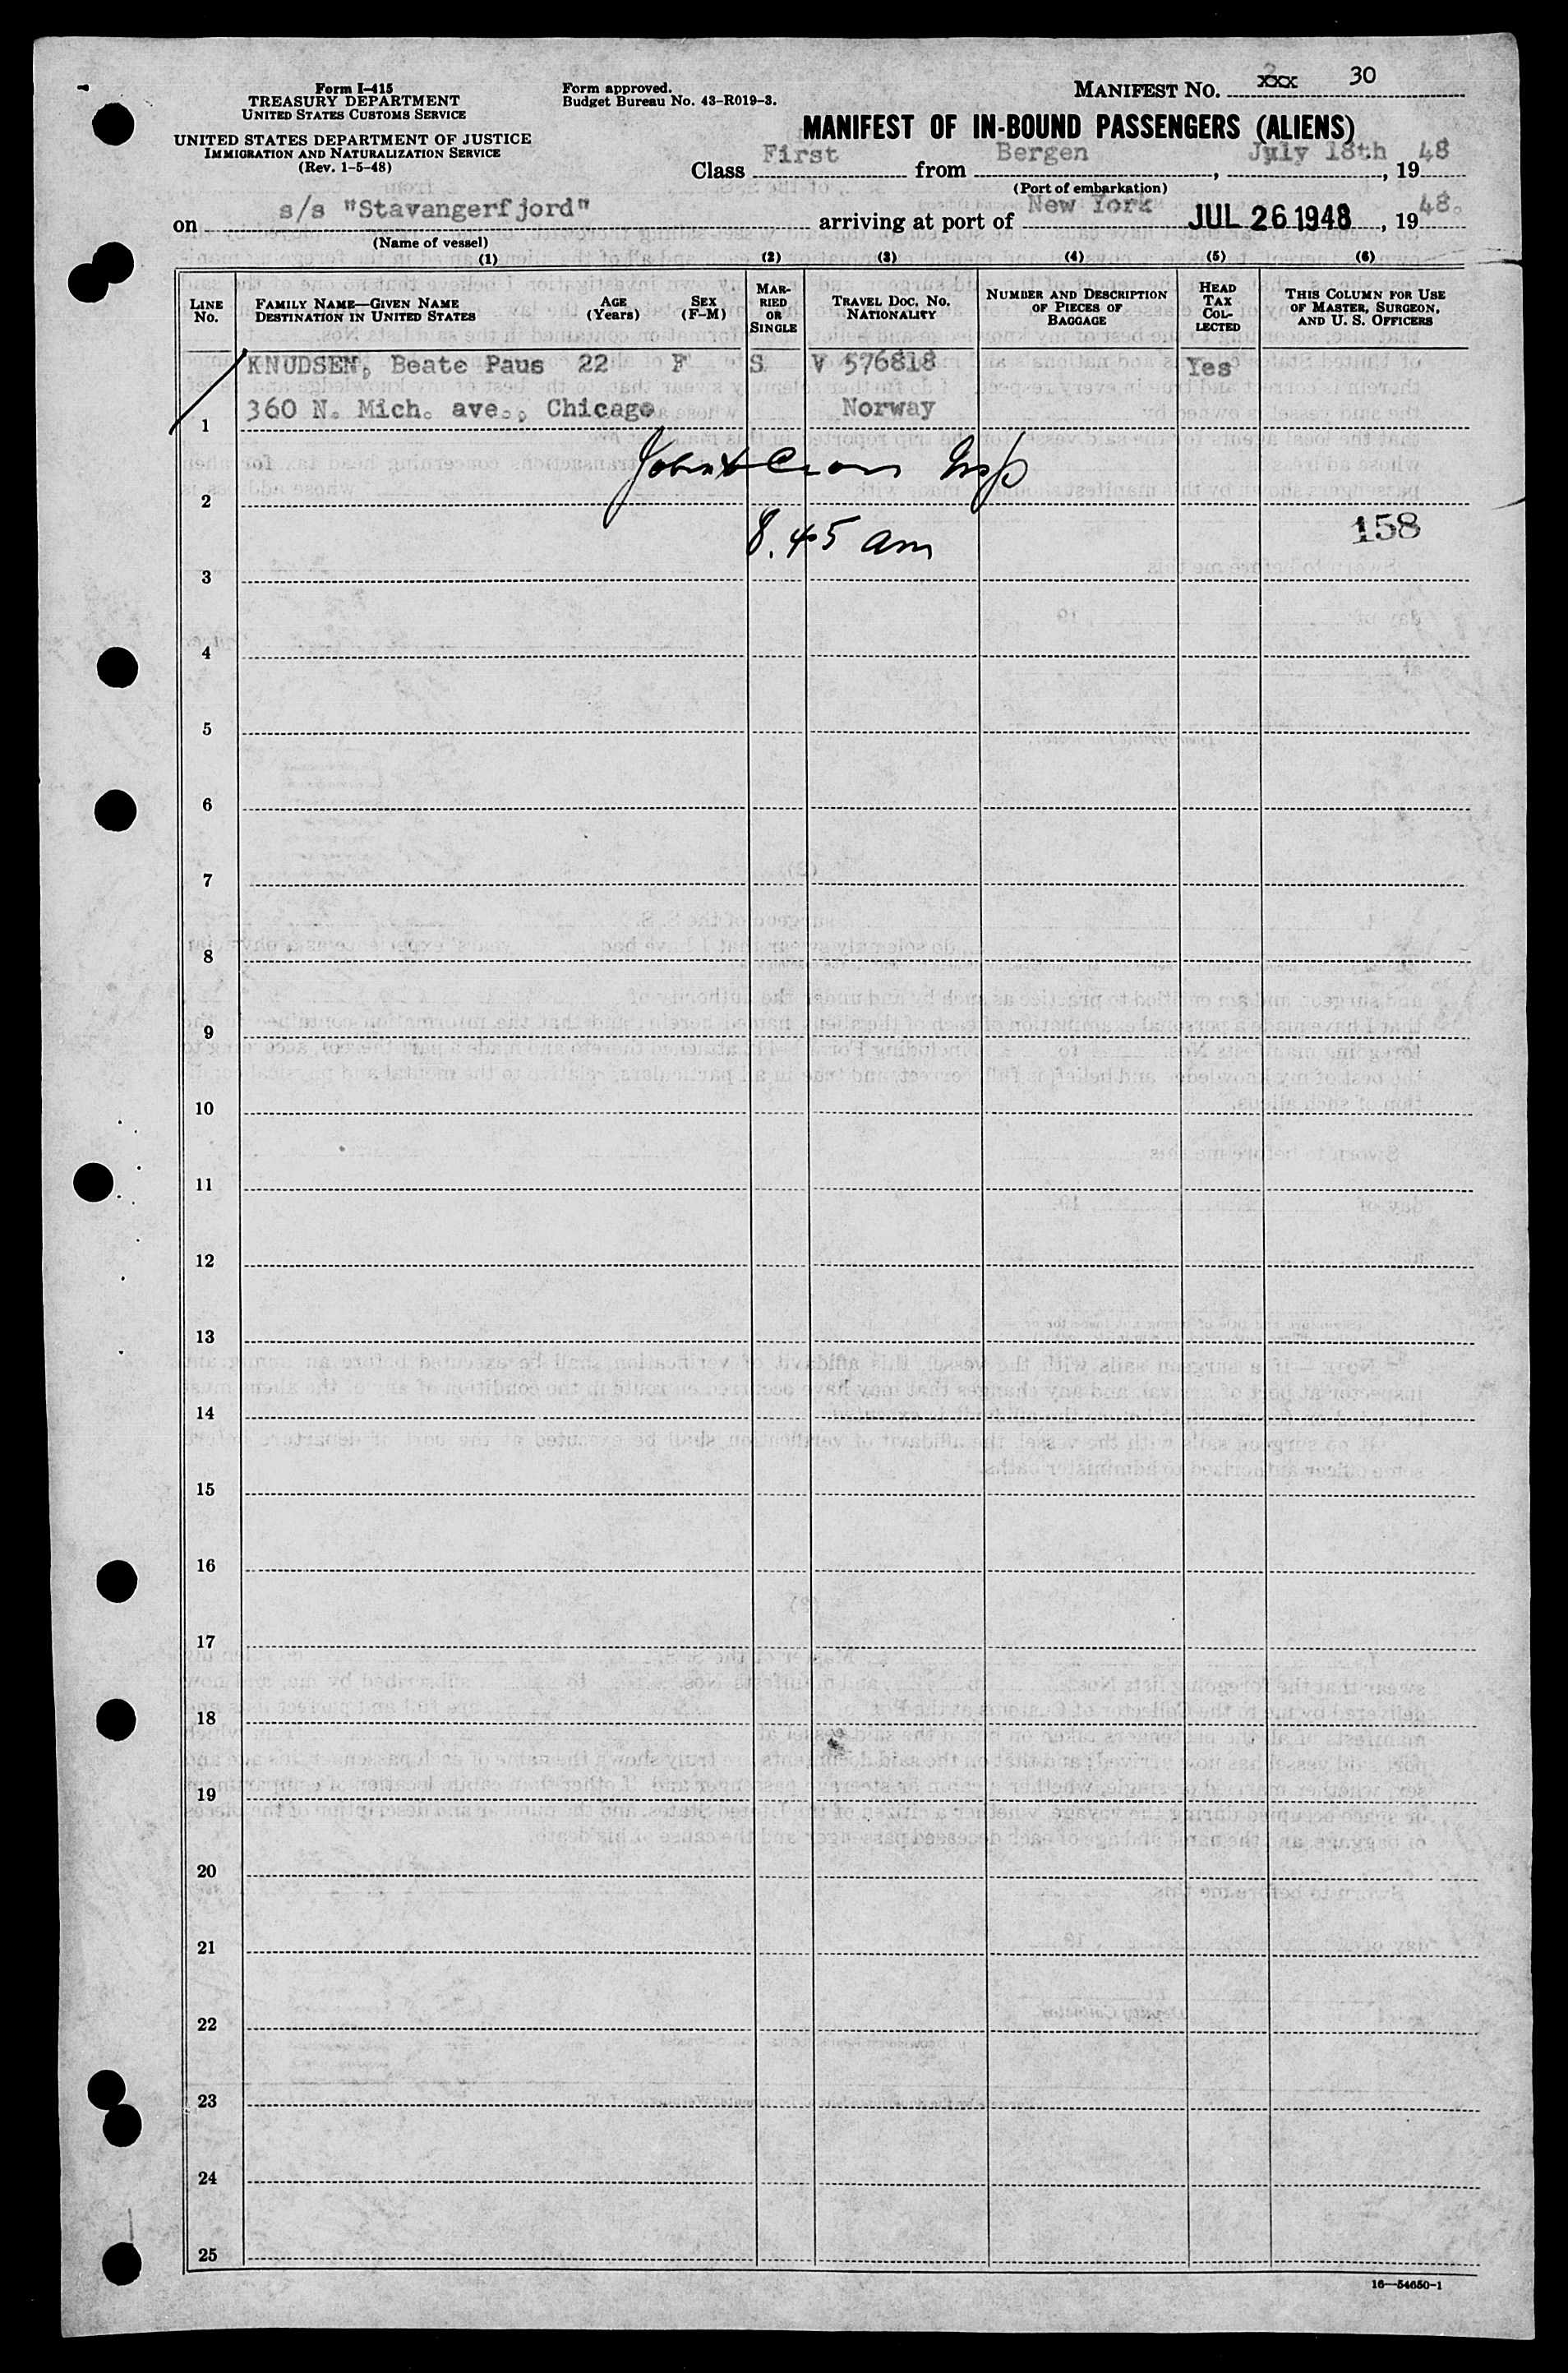 Form I-415
TREASURY DEPARTMENT
UNITED STATES CUSTOMS SERVICE
UNITED STATES DEPARTMENT OF JUSTICE
IMMIGRATION AND NATURALIZATION SERVICE
(Rev. 1-5-48)
Form approved.
Budget Bureau No. 43-R019-3.
MANIFEST NO. xxx 30
MANIFEST OF IN-BOUND PASSENGERS (ALIENS)
Class First from Bergen, July 18th, 1948
(Port of embarkation)
on s/s "Stavangerfjord" arriving at port of New York JUL 26 1948, 1948.
(Name of vessel)
(1) (2) (3) (4) (5) (6)
LINE No. FAMILY NAME—GIVEN NAME DESTINATION IN UNITED STATES AGE (Years) SEX (F-M) MARRIED OR SINGLE TRAVEL DOC. NO. NATIONALITY NUMBER AND DESCRIPTION OF PIECES OF BAGGAGE HEAD TAX COLLECTED THIS COLUMN FOR USE OF MASTER, SURGEON, AND U. S. OFFICERS
KNUDSEN, Beate Paus 22 F S V 576818 Yes
1 360 N. Mich. ave., Chicago Norway
2
8.45 am 158
3
4
5
6
7
8
9
10
11
12
13
14
15
16
17
18
19
20
21
22
23
24
25
16—54650-1